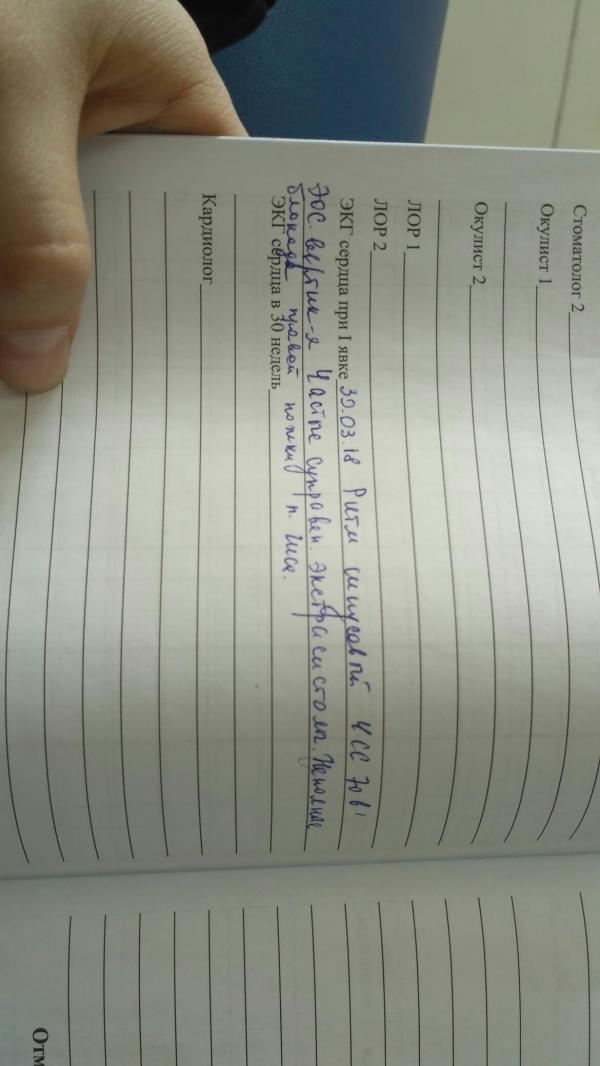 Стоматолог 2
Окулист 1
Окулист 2
ЛОР 1
ЛОР 2
ЭКГ сердца при I явке 30.03.18 Ритм синусовый ЧСС 70 в 1
ЭОС. вертик-я Частые суправен. экстрасистолы. Неполная
блокада правой ножки п. Гиса.
ЭКГ сердца в 30 недель
Кардиолог
Отм